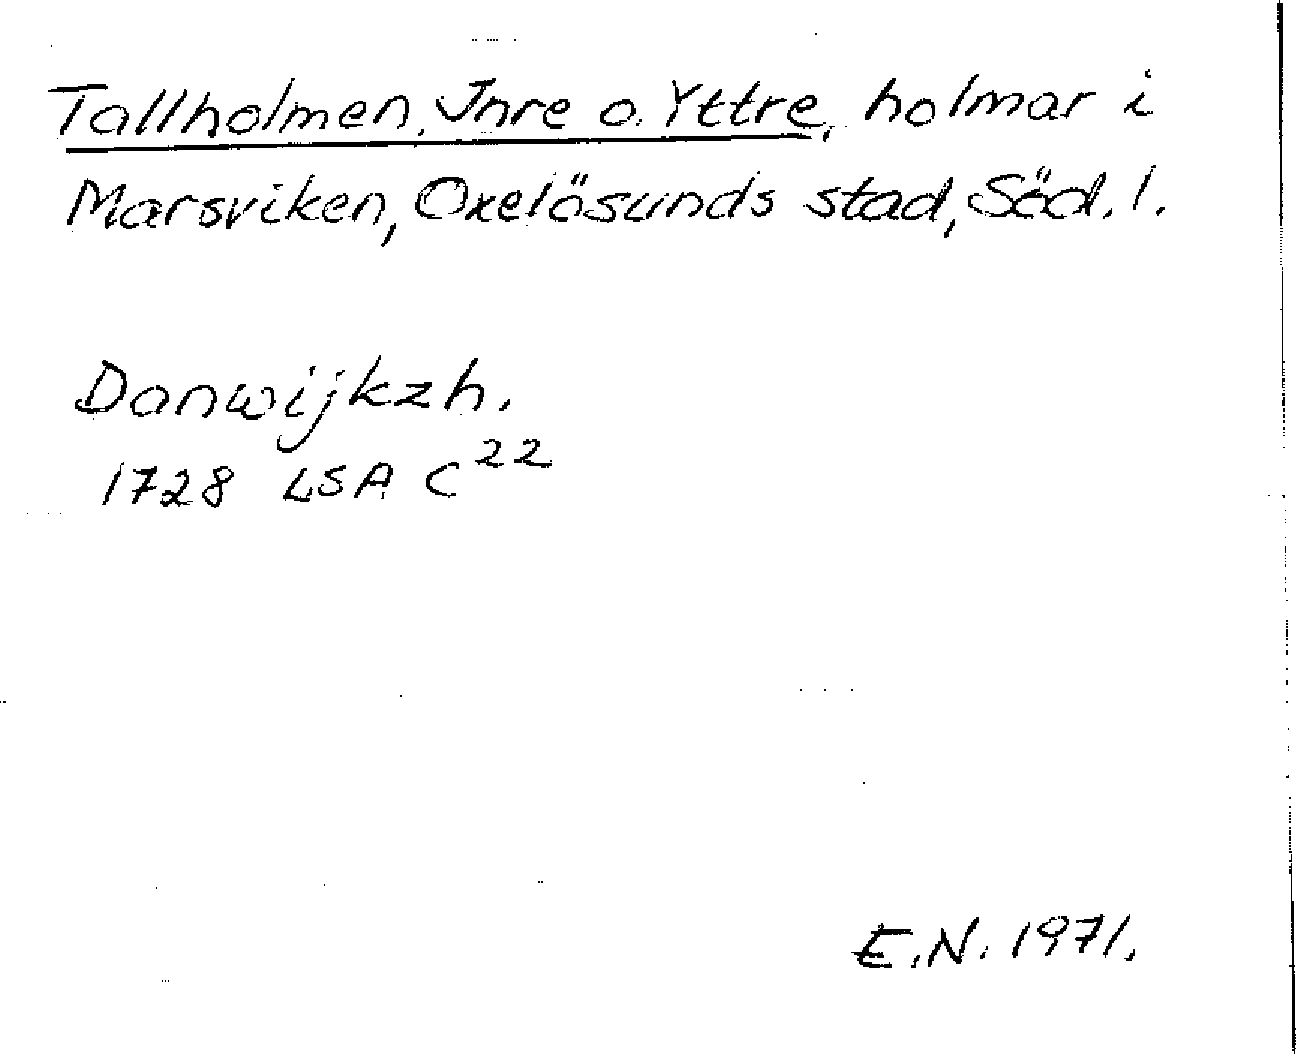 Tallholmen, Inre o. Yttre, holmar i
Marsviken, Oxelösunds stad, Söd. l.
Danwijkzh.
1728 LSA C22
E.N. 1971.